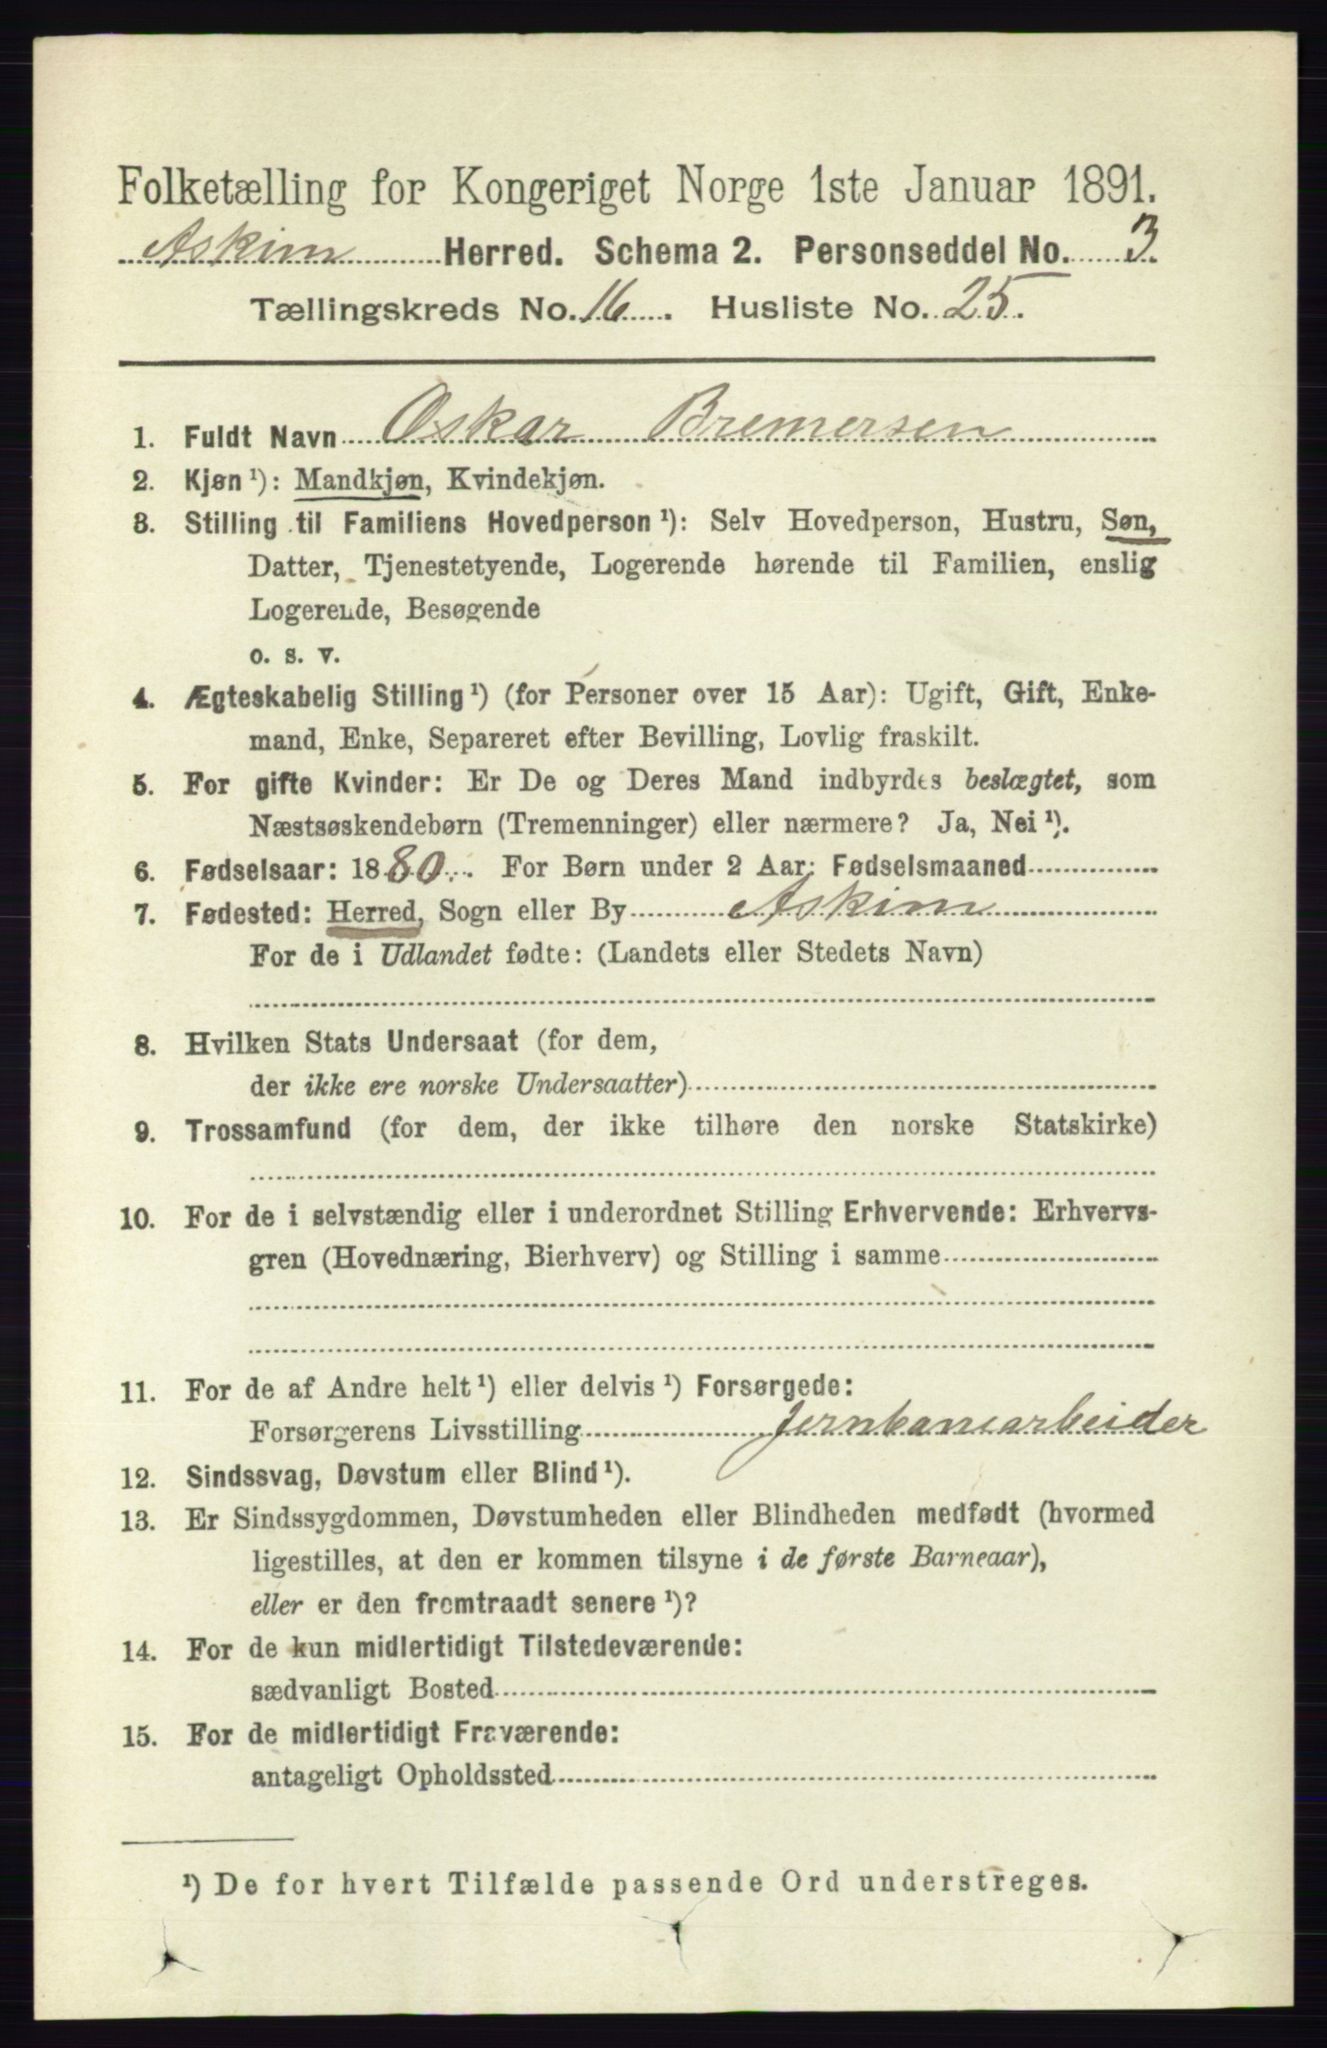 Folketælling for Kongeriget Norge 1ste Januar 1891.
Askim Herred. Schema 2. Personseddel No. 3.
Tællingskreds No. 16. Husliste No. 25.
1. Fuldt Navn Oskar Bremersen
2. Kjøn ¹): Mandkjøn, Kvindekjøn.
3. Stilling til Familiens Hovedperson ¹): Selv Hovedperson, Hustru, Søn,
Datter, Tjenestetyende, Logerende hørende til Familien, enslig
Logerende, Besøgende
o. s. v.
4. Ægteskabelig Stilling ¹) (for Personer over 15 Aar): Ugift, Gift, Enke-
mand, Enke, Separeret efter Bevilling, Lovlig fraskilt.
5. For gifte Kvinder: Er De og Deres Mand indbyrdes beslægtet, som
Næstsøskendebørn (Tremenninger) eller nærmere? Ja, Nei ¹).
6. Fødselsaar: 1880. For Børn under 2 Aar: Fødselsmaaned
7. Fødested: Herred, Sogn eller By Askim
For de i Udlandet fødte: (Landets eller Stedets Navn)
8. Hvilken Stats Undersaat (for dem,
der ikke ere norske Undersaatter)
9. Trossamfund (for dem, der ikke tilhøre den norske Statskirke)
10. For de i selvstændig eller i underordnet Stilling Erhvervende: Erhvervs-
gren (Hovednæring, Bierhverv) og Stilling i samme
11. For de af Andre helt ¹) eller delvis ¹) Forsørgede:
Forsørgerens Livsstilling Jernbanearbeider
12. Sindssvag, Døvstum eller Blind ¹).
13. Er Sindssygdommen, Døvstumheden eller Blindheden medfødt (hvormed
ligestilles, at den er kommen tilsyne i de første Barneaar),
eller er den fremtraadt senere ¹)?
14. For de kun midlertidigt Tilstedeværende:
sædvanligt Bosted
15. For de midlertidigt Fraværende:
antageligt Opholdssted
¹) De for hvert Tilfælde passende Ord understreges.